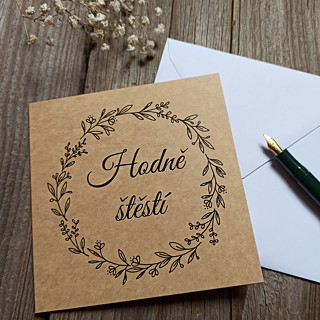 Hodně
štěstí